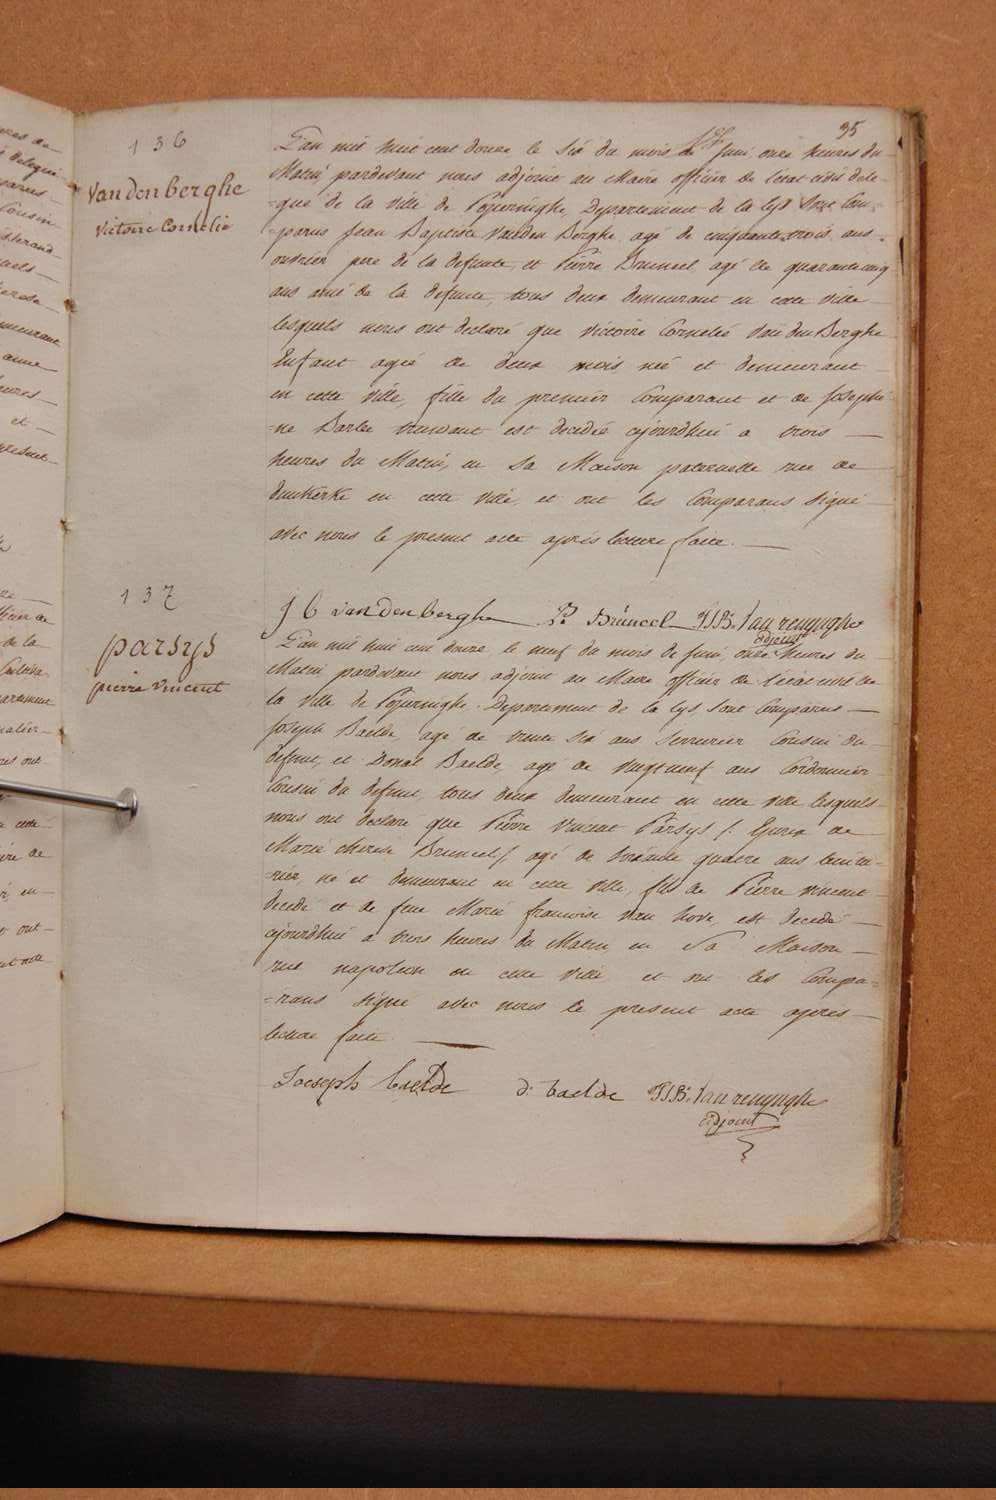 35
136
Vandenberghe
Victoire Cornelie
L'an mil huit cent douze le six du mois de Juin onze heures du
Matin, pardevant nous adjoint au Maire officier de l'état civil dele-
=gué de la ville de Poperinghe, Departement de la Lys Sont Com-
parus Jean Baptiste Vanden Berghe agé de cinquante trois ans
ouvrier pere de la defunte, et Pierre Bruneel agé de quarante cinq
ans ami de la defunte, tous deux demeurant en cette ville
lesquels nous ont declaré que Victoire Cornelie Vanden Berghe
Enfant agée de deux mois née et demeurant
en cette ville, fille du premier Comparant et de Josephi-
=ne Barbe est decedée ajourdhui a trois
heures du Matin, en Sa Maison paternelle rue de
dunkerke en cette ville, et ont les Comparans Signé
avec nous le present acte après lecture faite.
J b vandenberghe P. Bruneel F J B. Van renynghe
adjoint
137
parsys
pierre vincent
L'an mil huit cent douze, le neuf du mois de Juin, onze heures du
Matin pardevant nous adjoint au Maire officier de l'état civil de
la ville de Poperinghe. Departement de la Lys, Sont Comparus
Joseph Baelde agé de trente Six ans Serrurier Cousin du
defunt, et Donat Baelde, agé de vingt neuf ans Cordonnier
Cousin du defunt, tous deux demeurant en cette ville lesquels
nous ont declaré que Pierre Vincent Parsys /: Epoux de
Marie therese Bruneel :/ agé de Soixante quatre ans
=nier, né et demeurant en cette ville, fils de Pierre vincent
decedé et de feue Marie francoise van hove, est decedé
ajourdhui a trois heures du Matin, en Sa Maison
rue napoleon en cette ville, et ont les Compa=
=rans Signé avec nous le present acte après
lecture faite.
Joeseph baelde d. baelde F J B. Van renynghe
adjoint